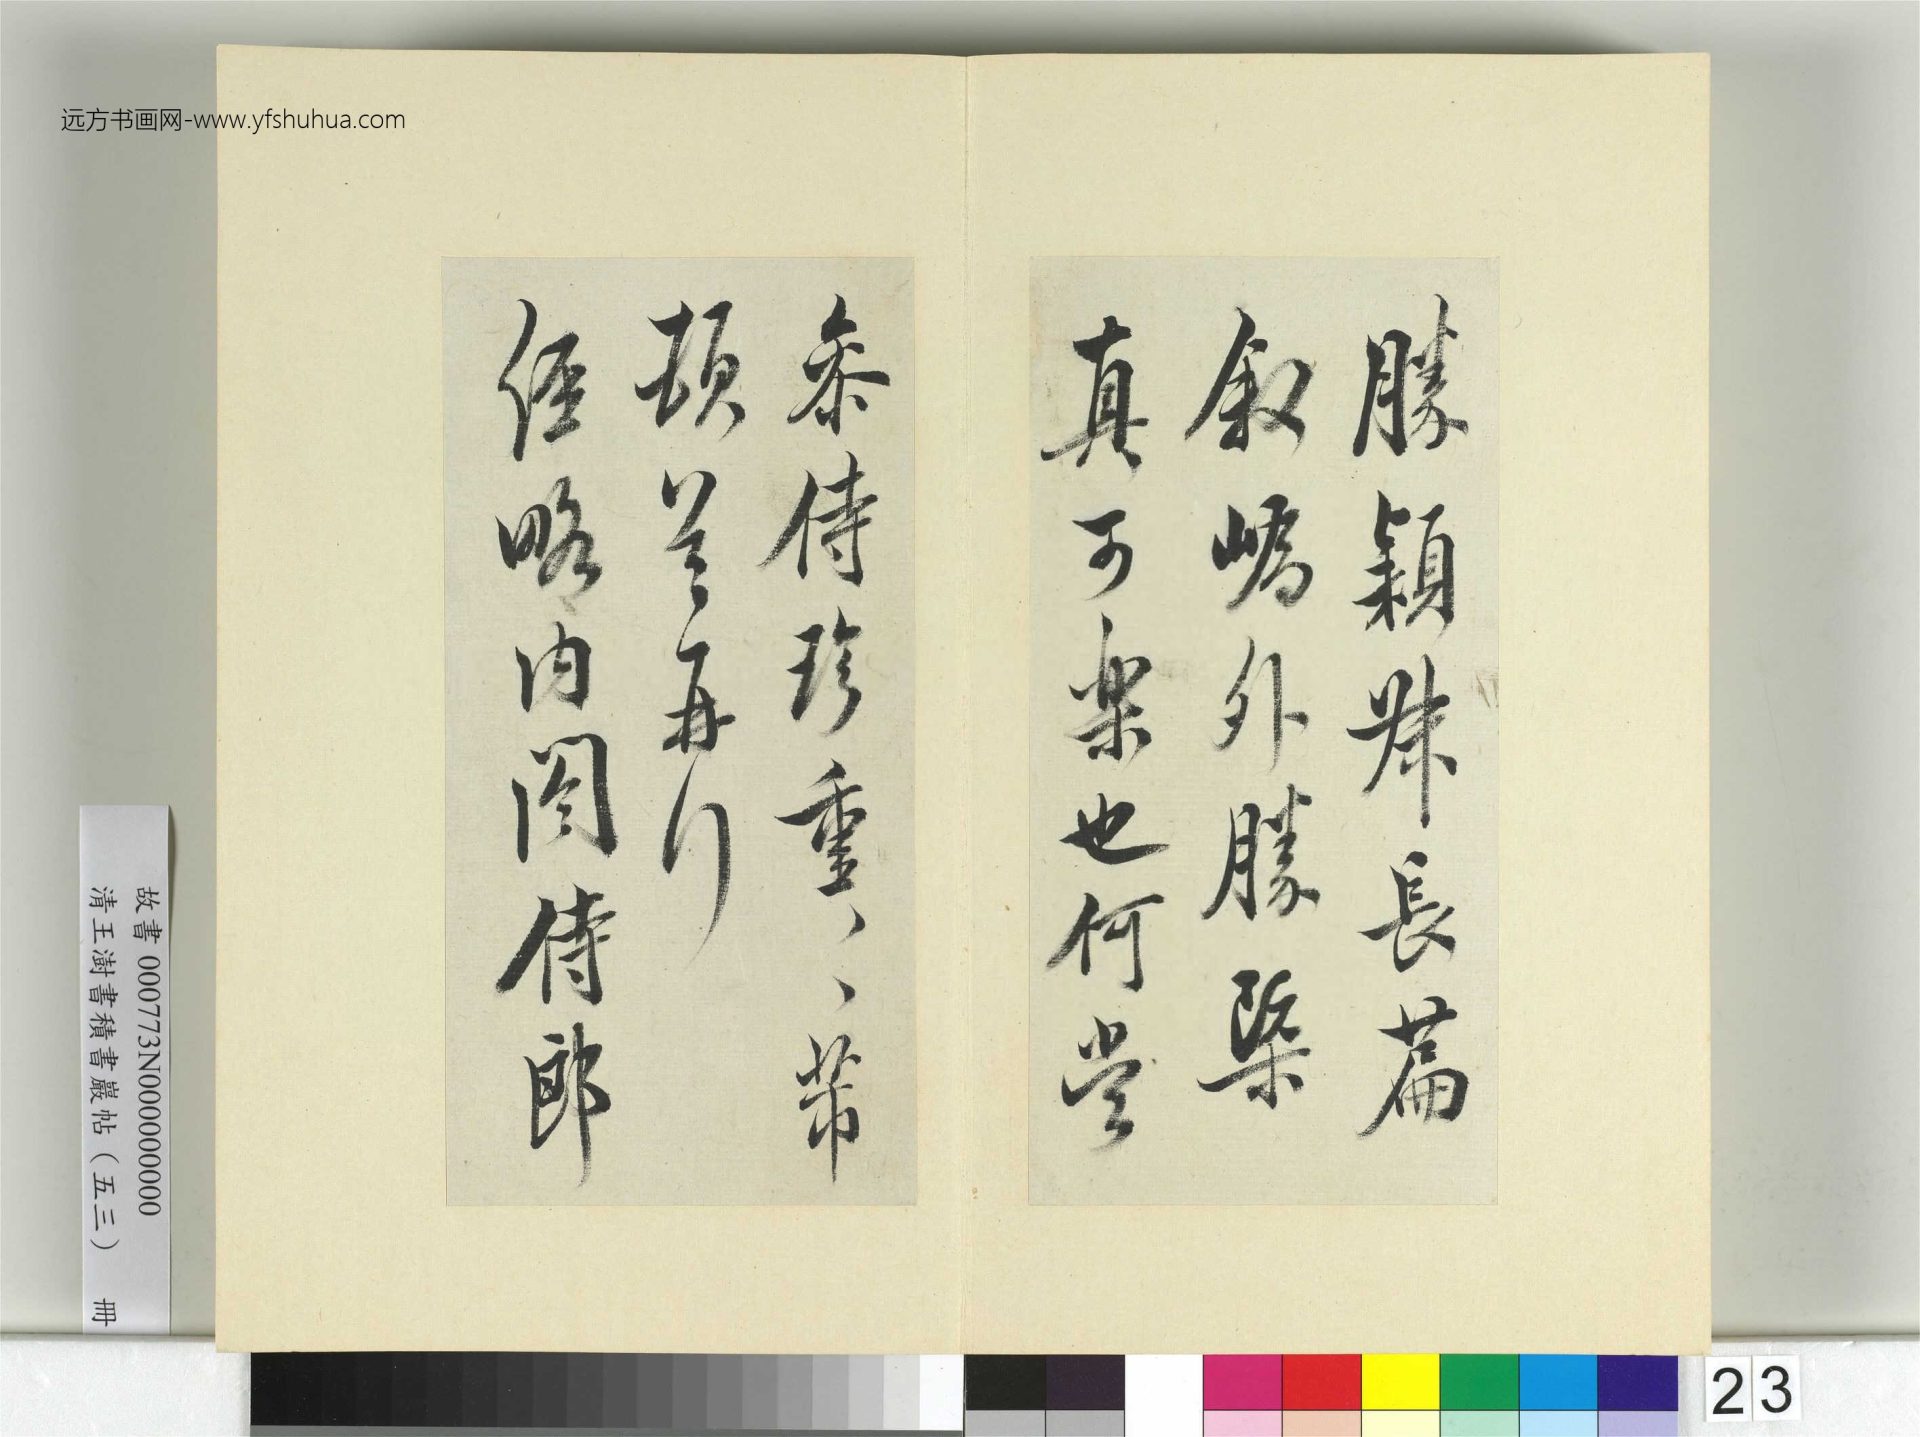 远方书画网-www.yfshuhua.com
勝穎長篇
叙嶠外勝槩
真可樂也何當
叅侍珍重〻〻芾
頓首再拜
經略内閣侍郎
故書 000773N000000000
清王澍書積書巖帖（五三） 冊
23